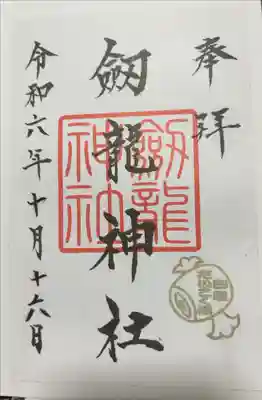 奉拝
劔龍神社
劔龍
神社
令和六年十月十六日